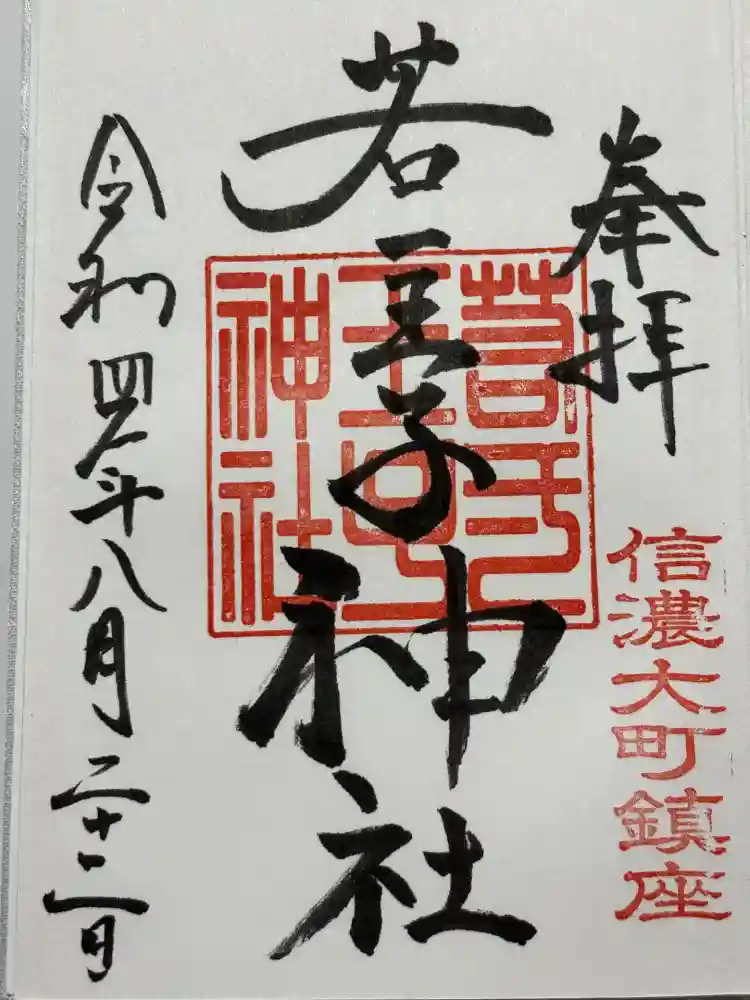 奉拝
信濃大町鎮座
若一王子神社
若一
王子
神社
令和四年八月二十二日